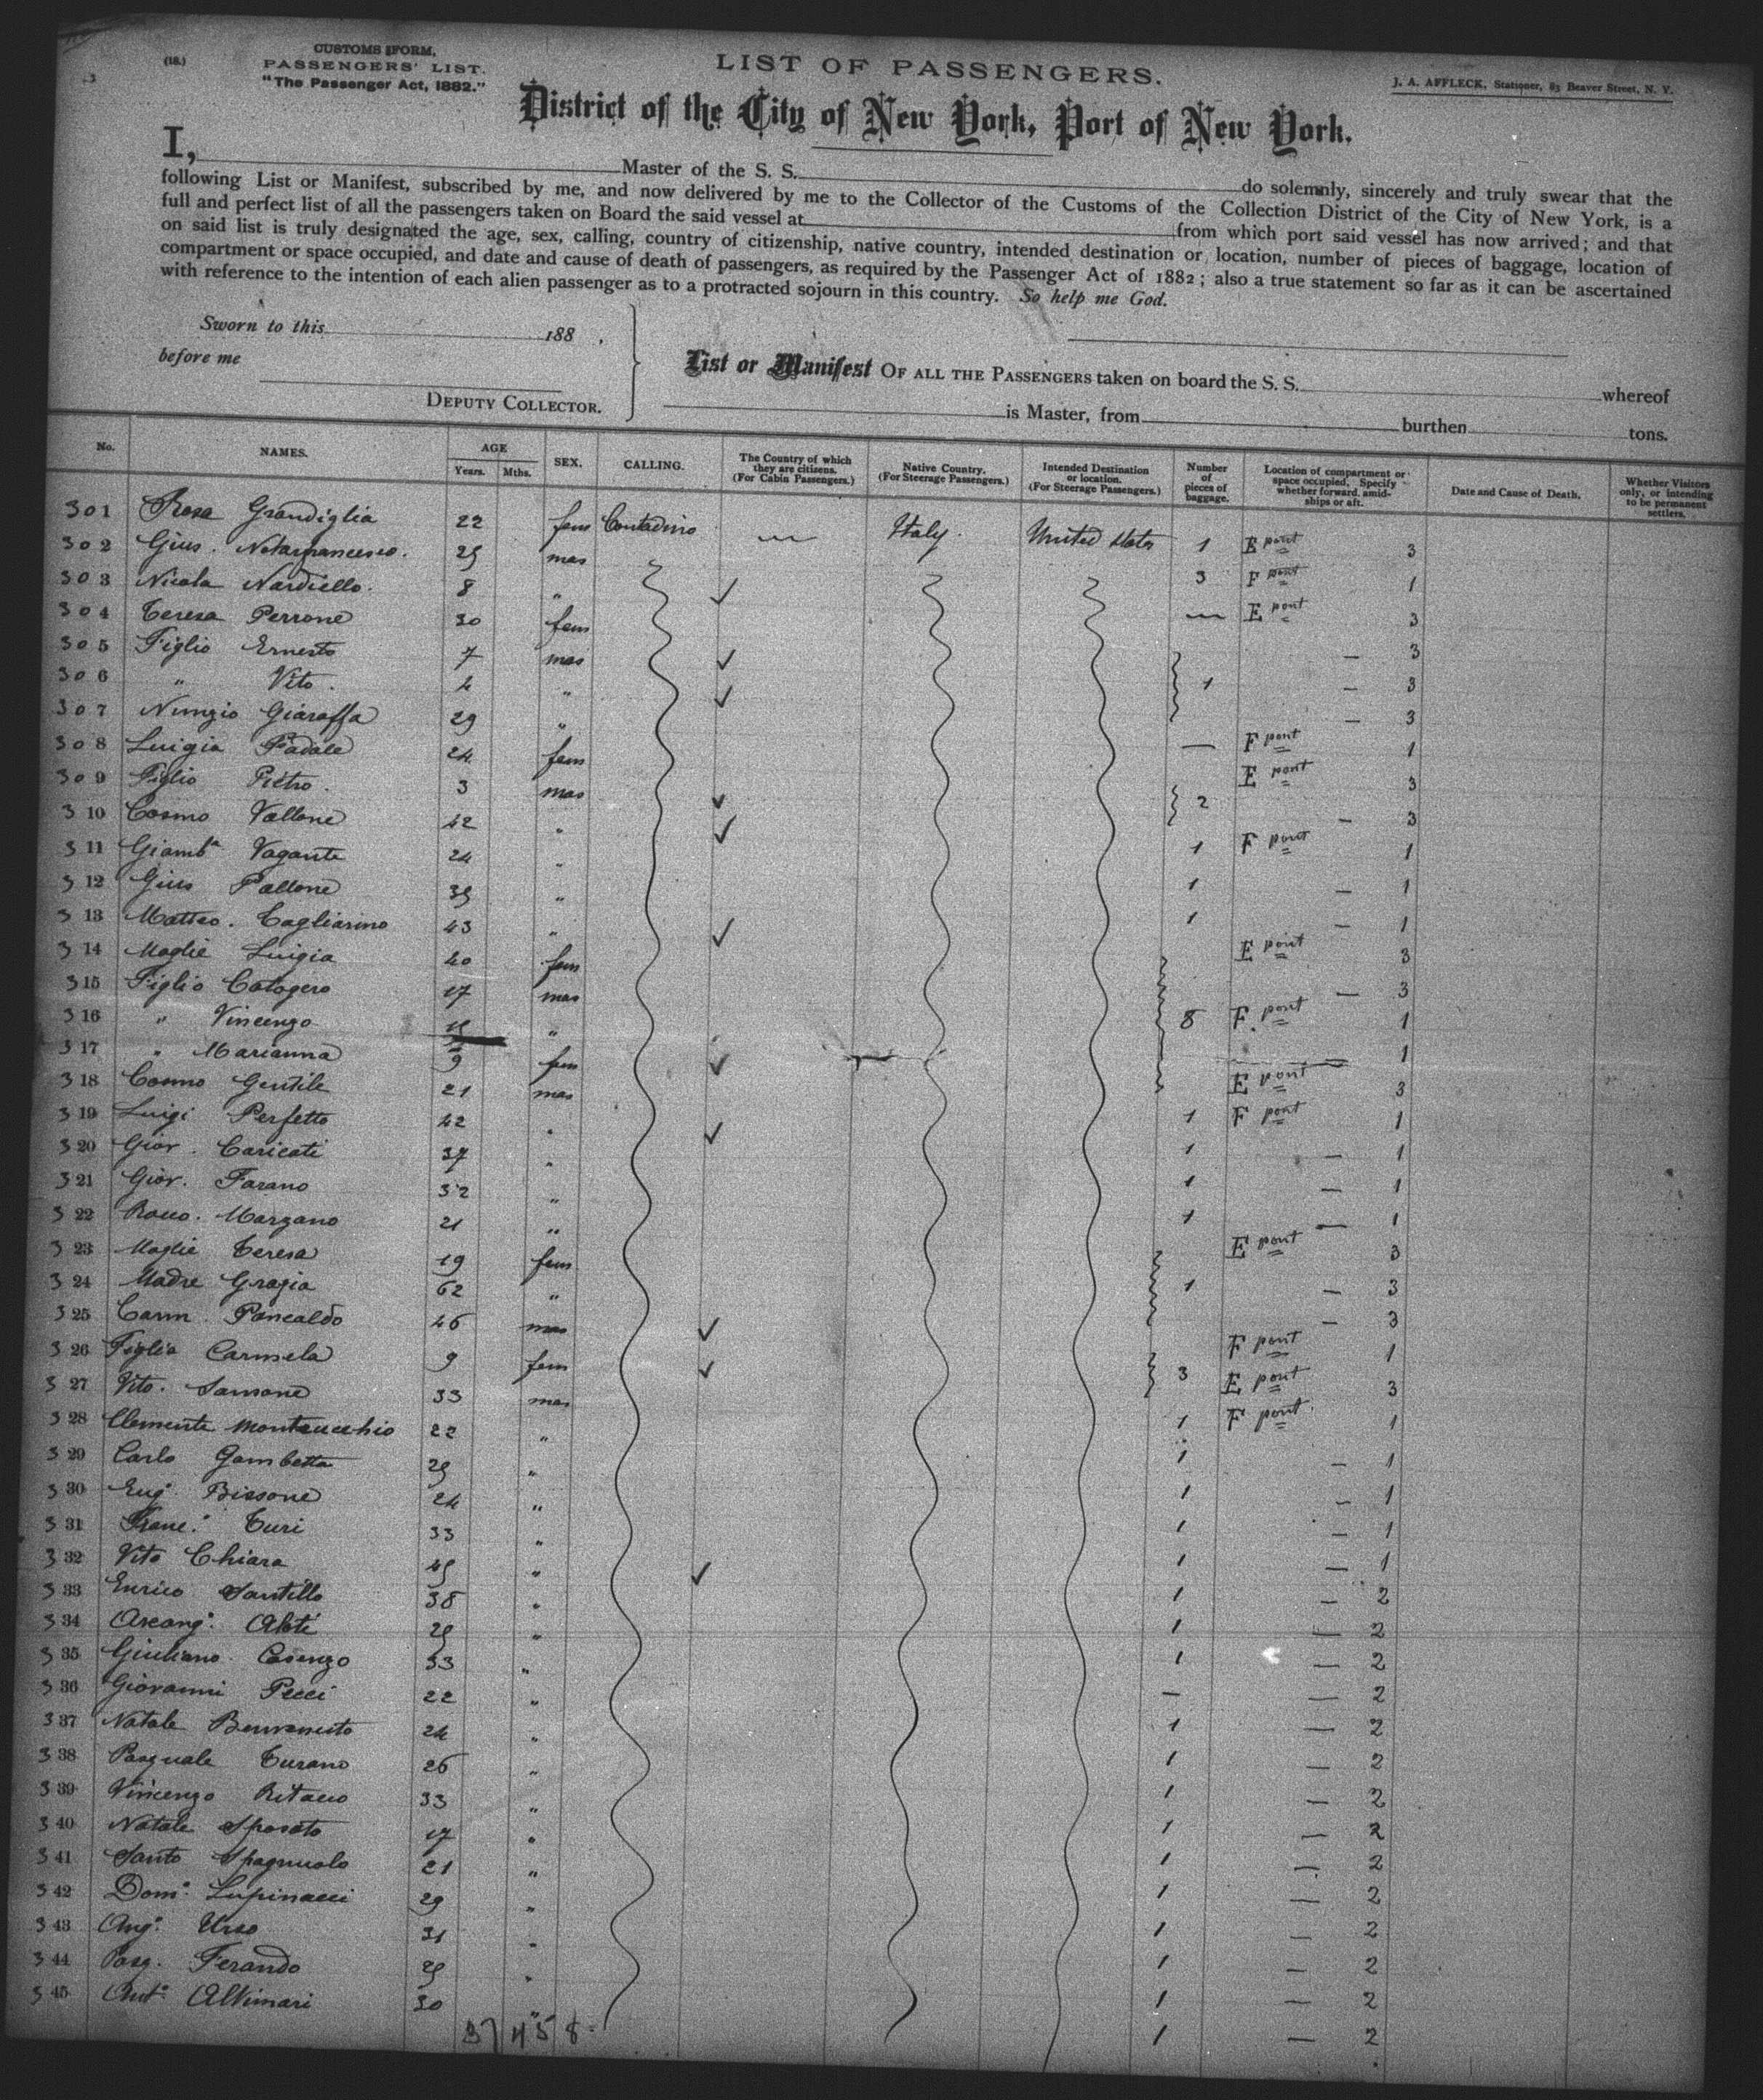 (18.)
CUSTOMS FORM,
PASSENGERS' LIST.
"The Passenger Act, 1882."
LIST OF PASSENGERS.
J. A. AFFLECK, Stationer, 83 Beaver Street, N. Y.
District of the City of New York, Port of New York.
I, Master of the S. S. do solemnly, sincerely and truly swear that the
following List or Manifest, subscribed by me, and now delivered by me to the Collector of the Customs of the Collection District of the City of New York, is a
full and perfect list of all the passengers taken on Board the said vessel at from which port said vessel has now arrived; and that
on said list is truly designated the age, sex, calling, country of citizenship, native country, intended destination or location, number of pieces of baggage, location of
compartment or space occupied, and date and cause of death of passengers, as required by the Passenger Act of 1882; also a true statement so far as it can be ascertained
with reference to the intention of each alien passenger as to a protracted sojourn in this country. So help me God.
Sworn to this 188 ,
before me
DEPUTY COLLECTOR.
List or Manifest OF ALL THE PASSENGERS taken on board the S. S. whereof
is Master, from burthen tons.
No. NAMES. AGE Years. Mths. SEX. CALLING. The Country of which they are citizens. (For Cabin Passengers.) Native Country. (For Steerage Passengers.) Intended Destination or location. (For Steerage Passengers.) Number of pieces of baggage. Location of compartment or space occupied. Specify whether forward, amidships or aft. Date and Cause of Death. Whether Visitors only, or intending to be permanent settlers.
301 Rosa Grandiglia 22 fem Contadino Italy. United States 1 E pont 3
302 Gius. Notarfrancesco. 25 mas 3 F pont 1
303 Nicola Nardiello. 8 " — E pont 3
304 Teresa Perrone 30 fem — 3
305 Figlio Ernesto 7 mas 1 — 3
306 " Vito. 2 " — 3
307 Nunzio Giaraffa 29 " — F pont 1
308 Luigia Padale 24 fem E pont 3
309 Figlio Pietro. 3 mas 2 — 3
310 Cosmo Vallone 42 " 1 F pont 1
311 Giamba Vagante 24 " 1 — 1
312 Gius Pallone 35 " 1 — 1
313 Matteo. Tagliarino 43 " E pont 3
314 Moglie Luigia 40 fem — 3
315 Figlio Calogero 17 mas 8 F pont 1
316 " Vincenzo " — 1
317 " Marianna 9 fem E pont 3
318 Cosmo Gentile 21 mas 1 F pont 1
319 Luigi Perfetto 42 " 1 — 1
320 Giov. Caricati 37 " 1 — 1
321 Giov. Farano 32 " 1 — 1
322 Rocco. Marzano 21 " E pont 3
323 Moglie Teresa 19 fem 1 — 3
324 Madre Grazia 62 " — 3
325 Carm. Pancaldo 46 mas F pont 1
326 Figlia Carmela 9 fem 3 E pont 3
327 Vito. Sansone 33 mas 1 F pont 1
328 Clemente Montecuchio 22 " 1 — 1
329 Carlo Gambetta 25 " 1 — 1
330 Eug. Bissone 24 " 1 — 1
331 Franc. Turi 33 " 1 — 1
332 Vito Chiara 45 " 1 — 2
333 Enrico Santillo 38 " 1 — 2
334 Arcang. Abate 25 " 1 — 2
335 Giuliano. Cosenzo 33 " — — 2
336 Giovanni Pecci 22 " 1 — 2
337 Natale Benvenuto 24 " 1 — 2
338 Pasquale Turano 26 " 1 — 2
339 Vincenzo Ritacco 33 " 1 — 2
340 Natale Sposato 17 " 1 — 2
341 Santo Spagnuolo 21 " 1 — 2
342 Dom. Lupinacci 29 " 1 — 2
343 Ang. Urso 31 " 1 — 2
344 Pasq. Ferando 25 " 1 — 2
345 Ant. Altimari 30 " 1 — 2